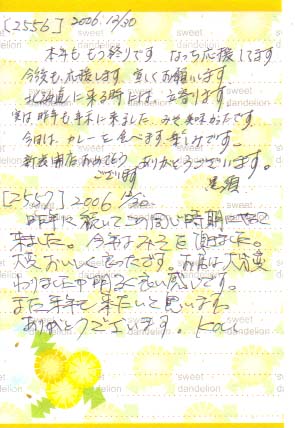 [2556] 2006.12/30
本年も もう終りです なっち応援してます
今後も、応援します。宜しくお願いします。
北海道に来る時には、立寄ります。
実は 昨年も年末に来ました みそ味
今日は、カレーを食べます。楽しみです。
新装開店おめでとう ございます ありがとうございます。
[2557] 2006 12/30
昨年に続いてこの同じ時期に
来ました。今年はみそを頂きました。
大変おいしくてよかったです。お店は大分変
わりましたが明るく良い感じです。
また来年も来たいと思います。
ありがとうございます。
sweet dandelion